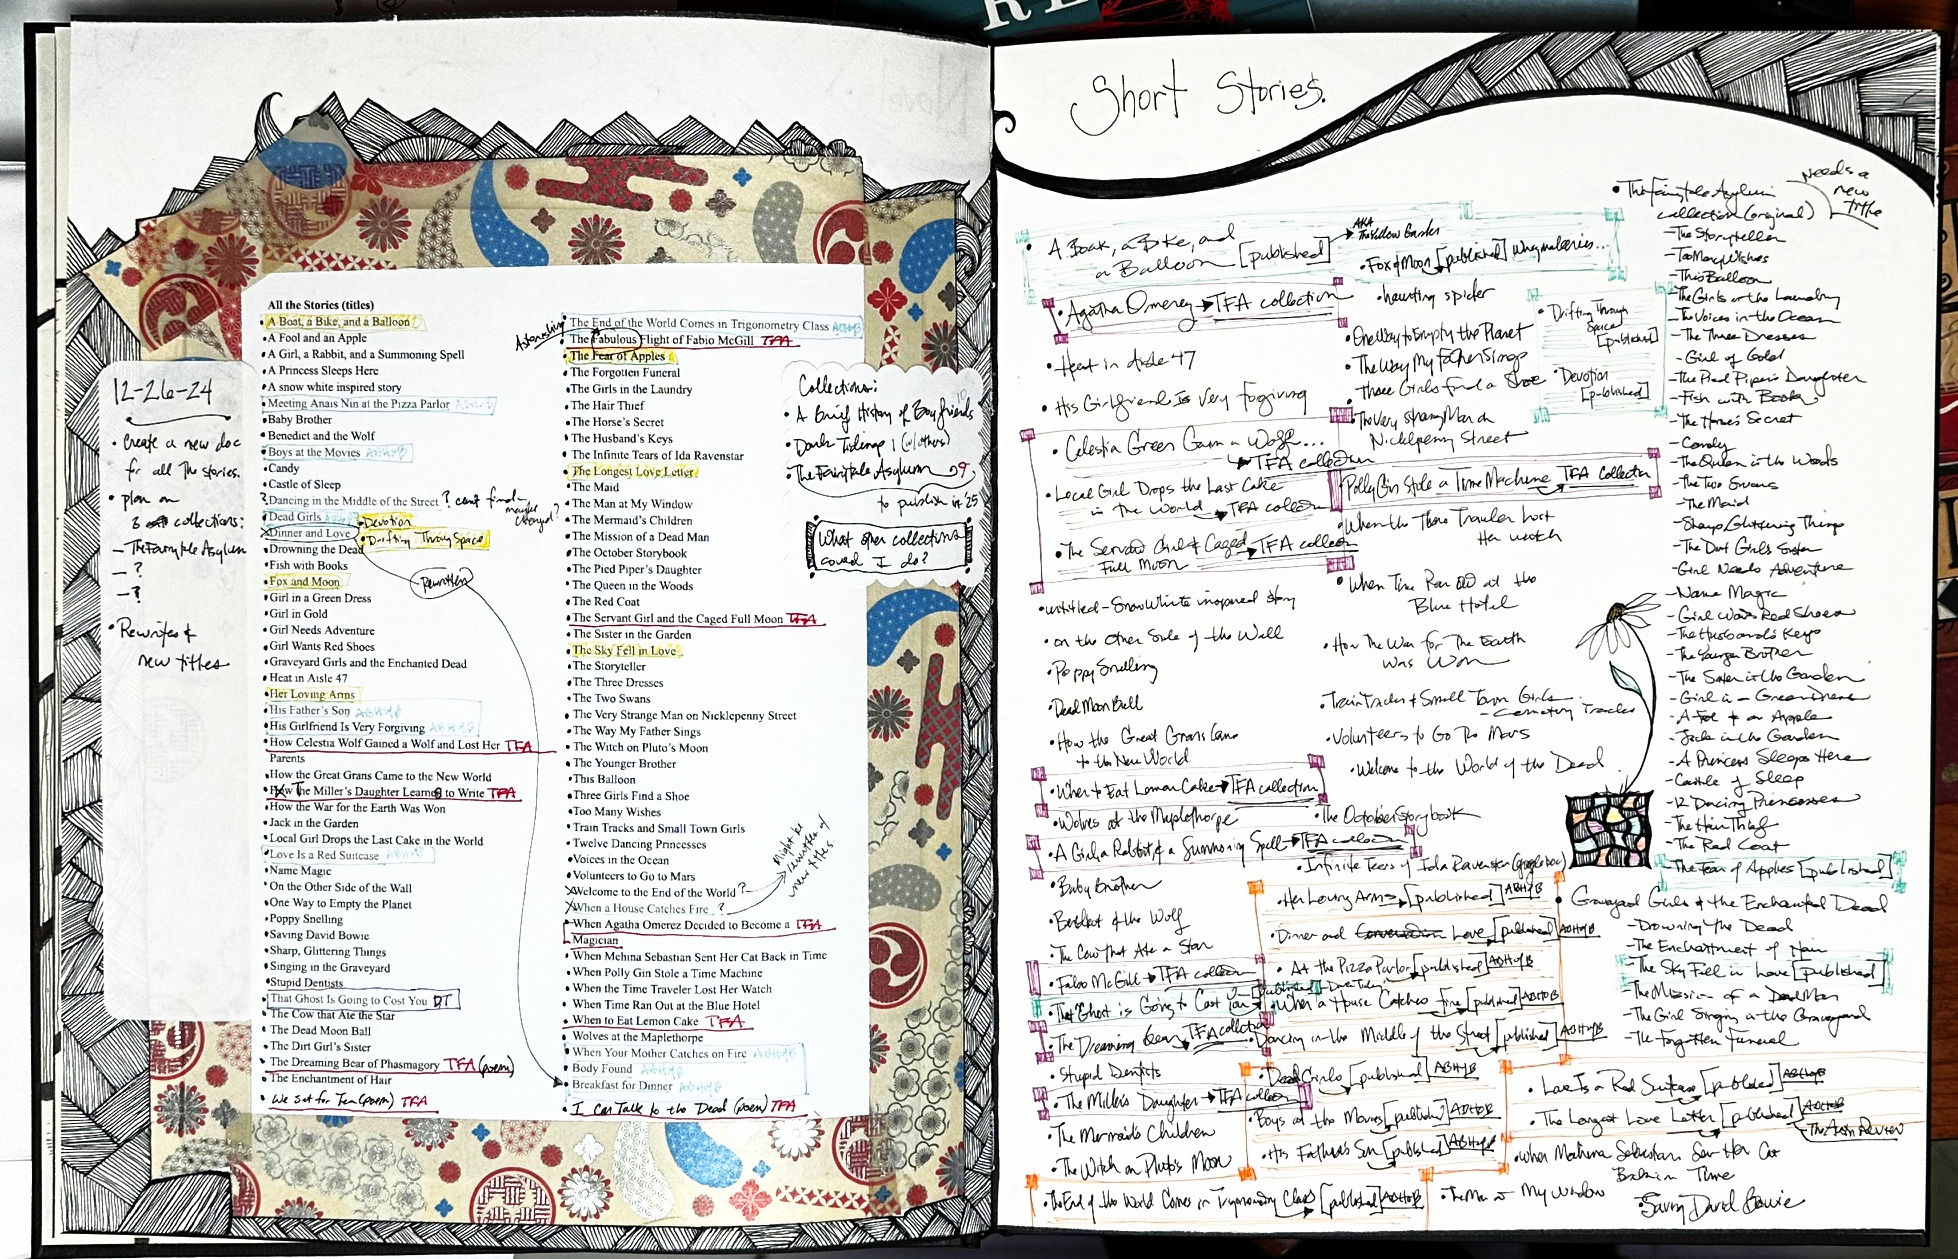 RE
12-26-24
• create a new doc
for all the stories.
• plan on
3 collections:
– The Fairytale Asylum
– ?
– ?
• Rewrites &
new titles
All the Stories (titles)
• A Boat, a Bike, and a Balloon
• A Fool and an Apple
• A Girl, a Rabbit, and a Summoning Spell
• A Princess Sleeps Here
• A snow white inspired story
• Meeting Anais Nin at the Pizza Parlor ABHofB
• Baby Brother
• Benedict and the Wolf
• Boys at the Movies ABHofB
• Candy
• Castle of Sleep
? Dancing in the Middle of the Street ? can't find– maybe changed?
• Dead Girls ABHofB
• Devotion
Dinner and Love
• Drifting Through Space
• Drowning the Dead
• Fish with Books
Rewritten
• Fox and Moon
• Girl in a Green Dress
• Girl in Gold
• Girl Needs Adventure
• Girl Wants Red Shoes
• Graveyard Girls and the Enchanted Dead
• Heat in Aisle 47
• Her Loving Arms
• His Father's Son ABHofB
• His Girlfriend Is Very Forgiving ABHofB
• How Celestia Wolf Gained a Wolf and Lost Her TFA
Parents
• How the Great Grans Came to the New World
• How The Miller's Daughter Learns to Write TFA
• How the War for the Earth Was Won
• Jack in the Garden
• Local Girl Drops the Last Cake in the World
• Love Is a Red Suitcase ABHofB
• Name Magic
• On the Other Side of the Wall
• One Way to Empty the Planet
• Poppy Snelling
• Saving David Bowie
• Sharp, Glittering Things
• Singing in the Graveyard
• Stupid Dentists
• That Ghost Is Going to Cost You DT
• The Cow that Ate the Star
• The Dead Moon Ball
• The Dirt Girl's Sister
• The Dreaming Bear of Phasmagory TFA (poem)
• The Enchantment of Hair
• We Set for Tea (poem) TFA
• The End of the World Comes in Trigonometry Class ABHofB
Astonishing
• The Fabulous Flight of Fabio McGill TFA
• The Fear of Apples
• The Forgotten Funeral
• The Girls in the Laundry
• The Hair Thief
• The Horse's Secret
• The Husband's Keys
• The Infinite Tears of Ida Ravenstar
• The Longest Love Letter
• The Maid
• The Man at My Window
• The Mermaid's Children
• The Mission of a Dead Man
• The October Storybook
• The Pied Piper's Daughter
• The Queen in the Woods
• The Red Coat
• The Servant Girl and the Caged Full Moon TFA
• The Sister in the Garden
• The Sky Fell in Love
• The Storyteller
• The Three Dresses
• The Two Swans
• The Very Strange Man on Nicklepenny Street
• The Way My Father Sings
• The Witch on Pluto's Moon
• The Younger Brother
• This Balloon
• Three Girls Find a Shoe
• Too Many Wishes
• Train Tracks and Small Town Girls
• Twelve Dancing Princesses
• Voices in the Ocean
• Volunteers to Go to Mars
Welcome to the End of the World ?
When a House Catches Fire ?
might be rewritten w/ new titles
• When Agatha Omerez Decided to Become a TFA
Magician
• When Mehina Sebastian Sent Her Cat Back in Time
• When Polly Gin Stole a Time Machine
• When the Time Traveler Lost Her Watch
• When Time Ran Out at the Blue Hotel
• When to Eat Lemon Cake TFA
• Wolves at the Maplethorpe
• When Your Mother Catches on Fire ABHofB
• Body Found
• Breakfast for Dinner ABHofB
• I Can Talk to the Dead (poem) TFA
Collections:
• A Brief History of Boyfriends
• Dark Tidings 1 (w/others)
• The Fairytale Asylum
to publish in 25
What other collections
could I do?
Short Stories.
• A Boat, a Bike, and
a Balloon [published]
• Agatha Omerey → TFA collection
• Heat in Aisle 47
• His Girlfriend is Very Forgiving
• Celestia Green Gain a Wolf...
→ TFA collection
• Local Girl Drops the Last Cake
in the World → TFA collection
• The Servant Girl & Caged → TFA collection
Full Moon
• untitled – Snow White inspired story
• on the Other Side of the Wall
• Poppy Snelling
• Dead Moon Ball
• How the Great Grans Came
to the New World
• When to Eat Lemon Cake → TFA collection
• Wolves at the Maplethorpe
• A Girl, a Rabbit & a Summoning Spell → TFA collection
• Baby Brother
• Benedict & the Wolf
• The Cow That Ate a Star
• Fabio McGill → TFA collection
• That Ghost is Going to Cost You → [published]
• The Dreaming Bear → TFA collection
• Stupid Dentists
• The Miller's Daughter → TFA collection
• The Mermaid's Children
• The Witch on Pluto's Moon
• The End of the World Comes in Trigonometry Class [published] ABHofB
AKA
The Yellow Garden
• Fox & Moon [published]
• haunting spider
• One Way to Empty the Planet
• The Way My Father Sings
• Three Girls Find a Shoe
• The Very Strange Man on
Nicklepenny Street
Polly Gin Stole a Time Machine → TFA collection
• When the Time Traveler Lost
Her Watch
• When Time Ran Out at the
Blue Hotel
• How The War for The Earth
Was Won
• Train Tracks & Small Town Girls
• Volunteers to Go To Mars
• Welcome to the World of the Dead
• The October Storybook
• Infinite Tears of Ida Ravenstar
• Her Loving Arms [published] ABHofB
• Dinner and Conversation Love [published] ABHofB
• At the Pizza Parlor [published] ABHofB
• When a House Catches Fire [published] ABHofB
• Dancing in the Middle of the Street [published] ABHofB
• Dead Girls [published] ABHofB
Boys at the Movies [published] ABHofB
• His Father's Son [published] ABHofB
• The Man at My Window
• Drifting Through
Space
[published]
• Devotion
[published]
• The Fairytale Asylum
collection (original)
Needs a
new
title
– The Storyteller
– Too Many Wishes
– This Balloon
– The Girls in the Laundry
– The Voices in the Ocean
– The Three Dresses
– Girl of Gold
– The Pied Piper's Daughter
– Fish with Books
– The Horse's Secret
– Candy
– The Queen in the Woods
– The Two Swans
– The Maid
– Sharp, Glittering Things
– The Dirt Girl's Sister
– Girl Needs Adventure
– Name Magic
– Girl Wants Red Shoes
– The Husband's Keys
– The Younger Brother
– The Sister in the Garden
– Girl in a Green Dress
– A Fool & an Apple
– Jack in the Garden
– A Princess Sleeps Here
– Castle of Sleep
– 12 Dancing Princesses
– The Hair Thief
– The Red Coat
– The Fear of Apples [published]
• Graveyard Girls & the Enchanted Dead
– Drowning the Dead
– The Enchantment of Hair
– The Sky Fell in Love [published]
– The Mission of a Dead Man
– The Girl Singing in the Graveyard
– The Forgotten Funeral
• Love Is a Red Suitcase [published] ABHofB
• The Longest Love Letter [published] ABHofB
• When Mehina Sebastian Sent Her Cat
Back in Time
• Saving David Bowie